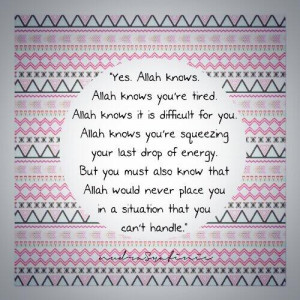 "Yes. Allah knows.
Allah knows you're tired.
Allah knows it is difficult for you.
Allah knows you're squeezing
your last drop of energy.
But you must also know that
Allah would never place you
in a situation that you
can't handle."